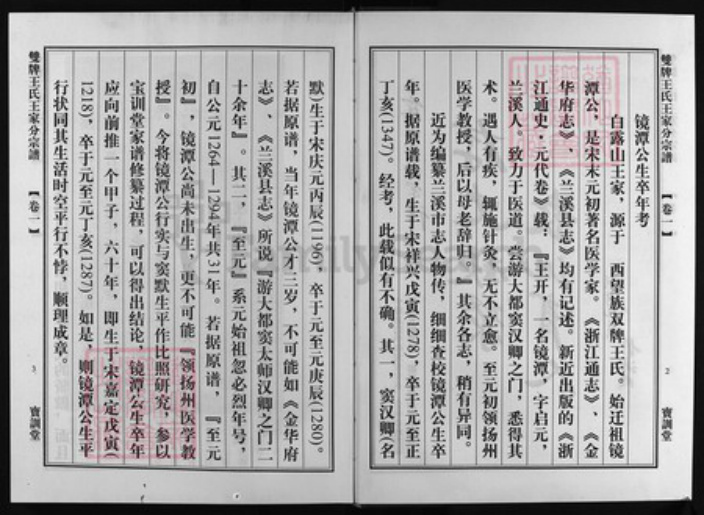 雙牌王氏王家分宗譜 【卷一】 2 寶訓堂
镜潭公生卒年考
白露山王家，源于 西望族双牌王氏。始迁祖镜
潭公，是宋末元初著名医学家。《浙江通志》、《金
华府志》、《兰溪县志》均有记述。新近出版的《浙
江通史·元代卷》载：『王开，一名镜潭，字启元，
兰溪人。致力于医道。尝游大都窦汉卿之门，悉得其
术。遇人有疾，辄施针灸，无不立愈。至元初领扬州
医学教授，后以母老辞归。』其余各志，稍有异同。
近为编纂兰溪市志人物传，细细查校镜潭公生卒
年。据原谱载，生于宋祥兴戊寅(1278)，卒于元至正
丁亥(1347)。经考，此载似有不确。其一，窦汉卿(名
默)生于宋庆元丙辰(1196)，卒于元至元庚辰(1280)。
若据原谱，当年镜潭公才三岁，不可能如《金华府
志》、《兰溪县志》所说『游大都窦太师汉卿之门二
十余年』。其二，『至元』系元始祖忽必烈年号，
自公元1264—1294年共31年。若据原谱，『至元
初』，镜潭公尚未出生，更不可能『领扬州医学教
授』。今将镜潭公行实与窦默生平作比照研究，参以
宝训堂家谱修纂过程，可以得出结论，镜潭公生卒年
应向前推一个甲子，六十年，即生于宋嘉定戊寅(
1218)，卒于元至元丁亥(1287)。如是，则镜潭公生平
行状同其生活时空平行不悖，顺理成章。
雙牌王氏王家分宗譜 【卷一】 3 寶訓堂